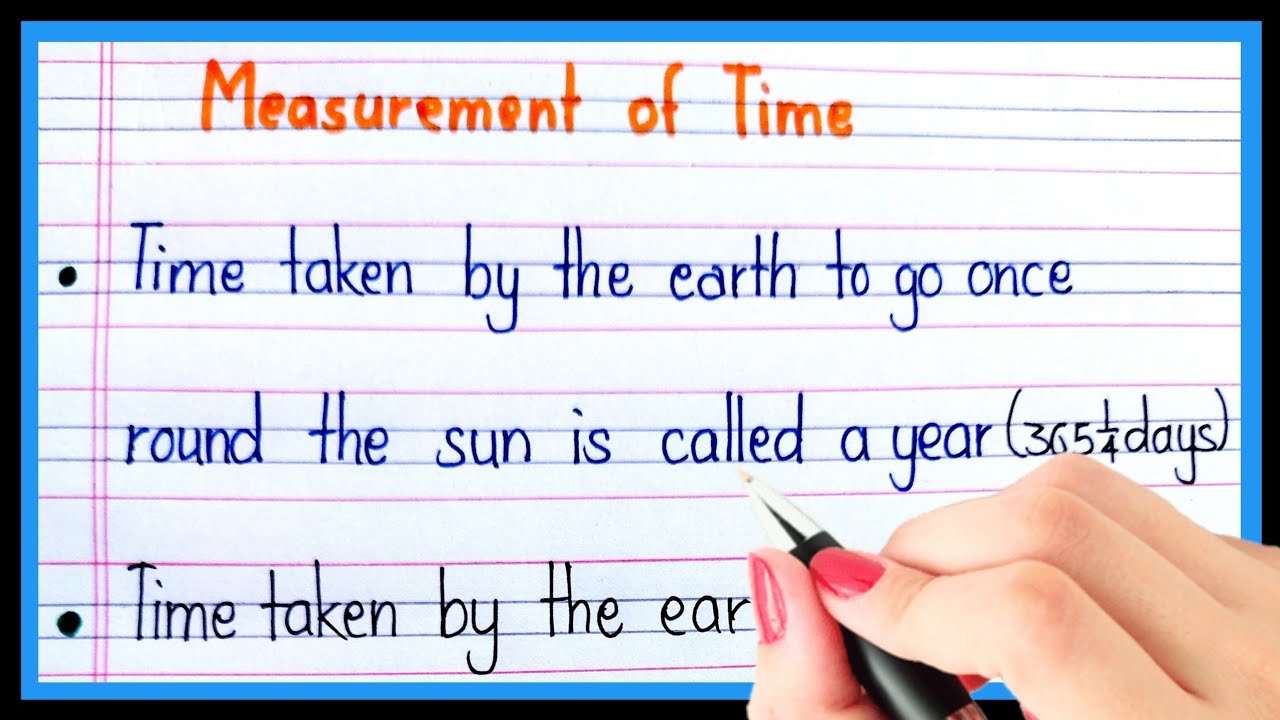 Measurement of Time
• Time taken by the earth to go once
round the sun is called a year (365 1/4 days)
• Time taken by the ear